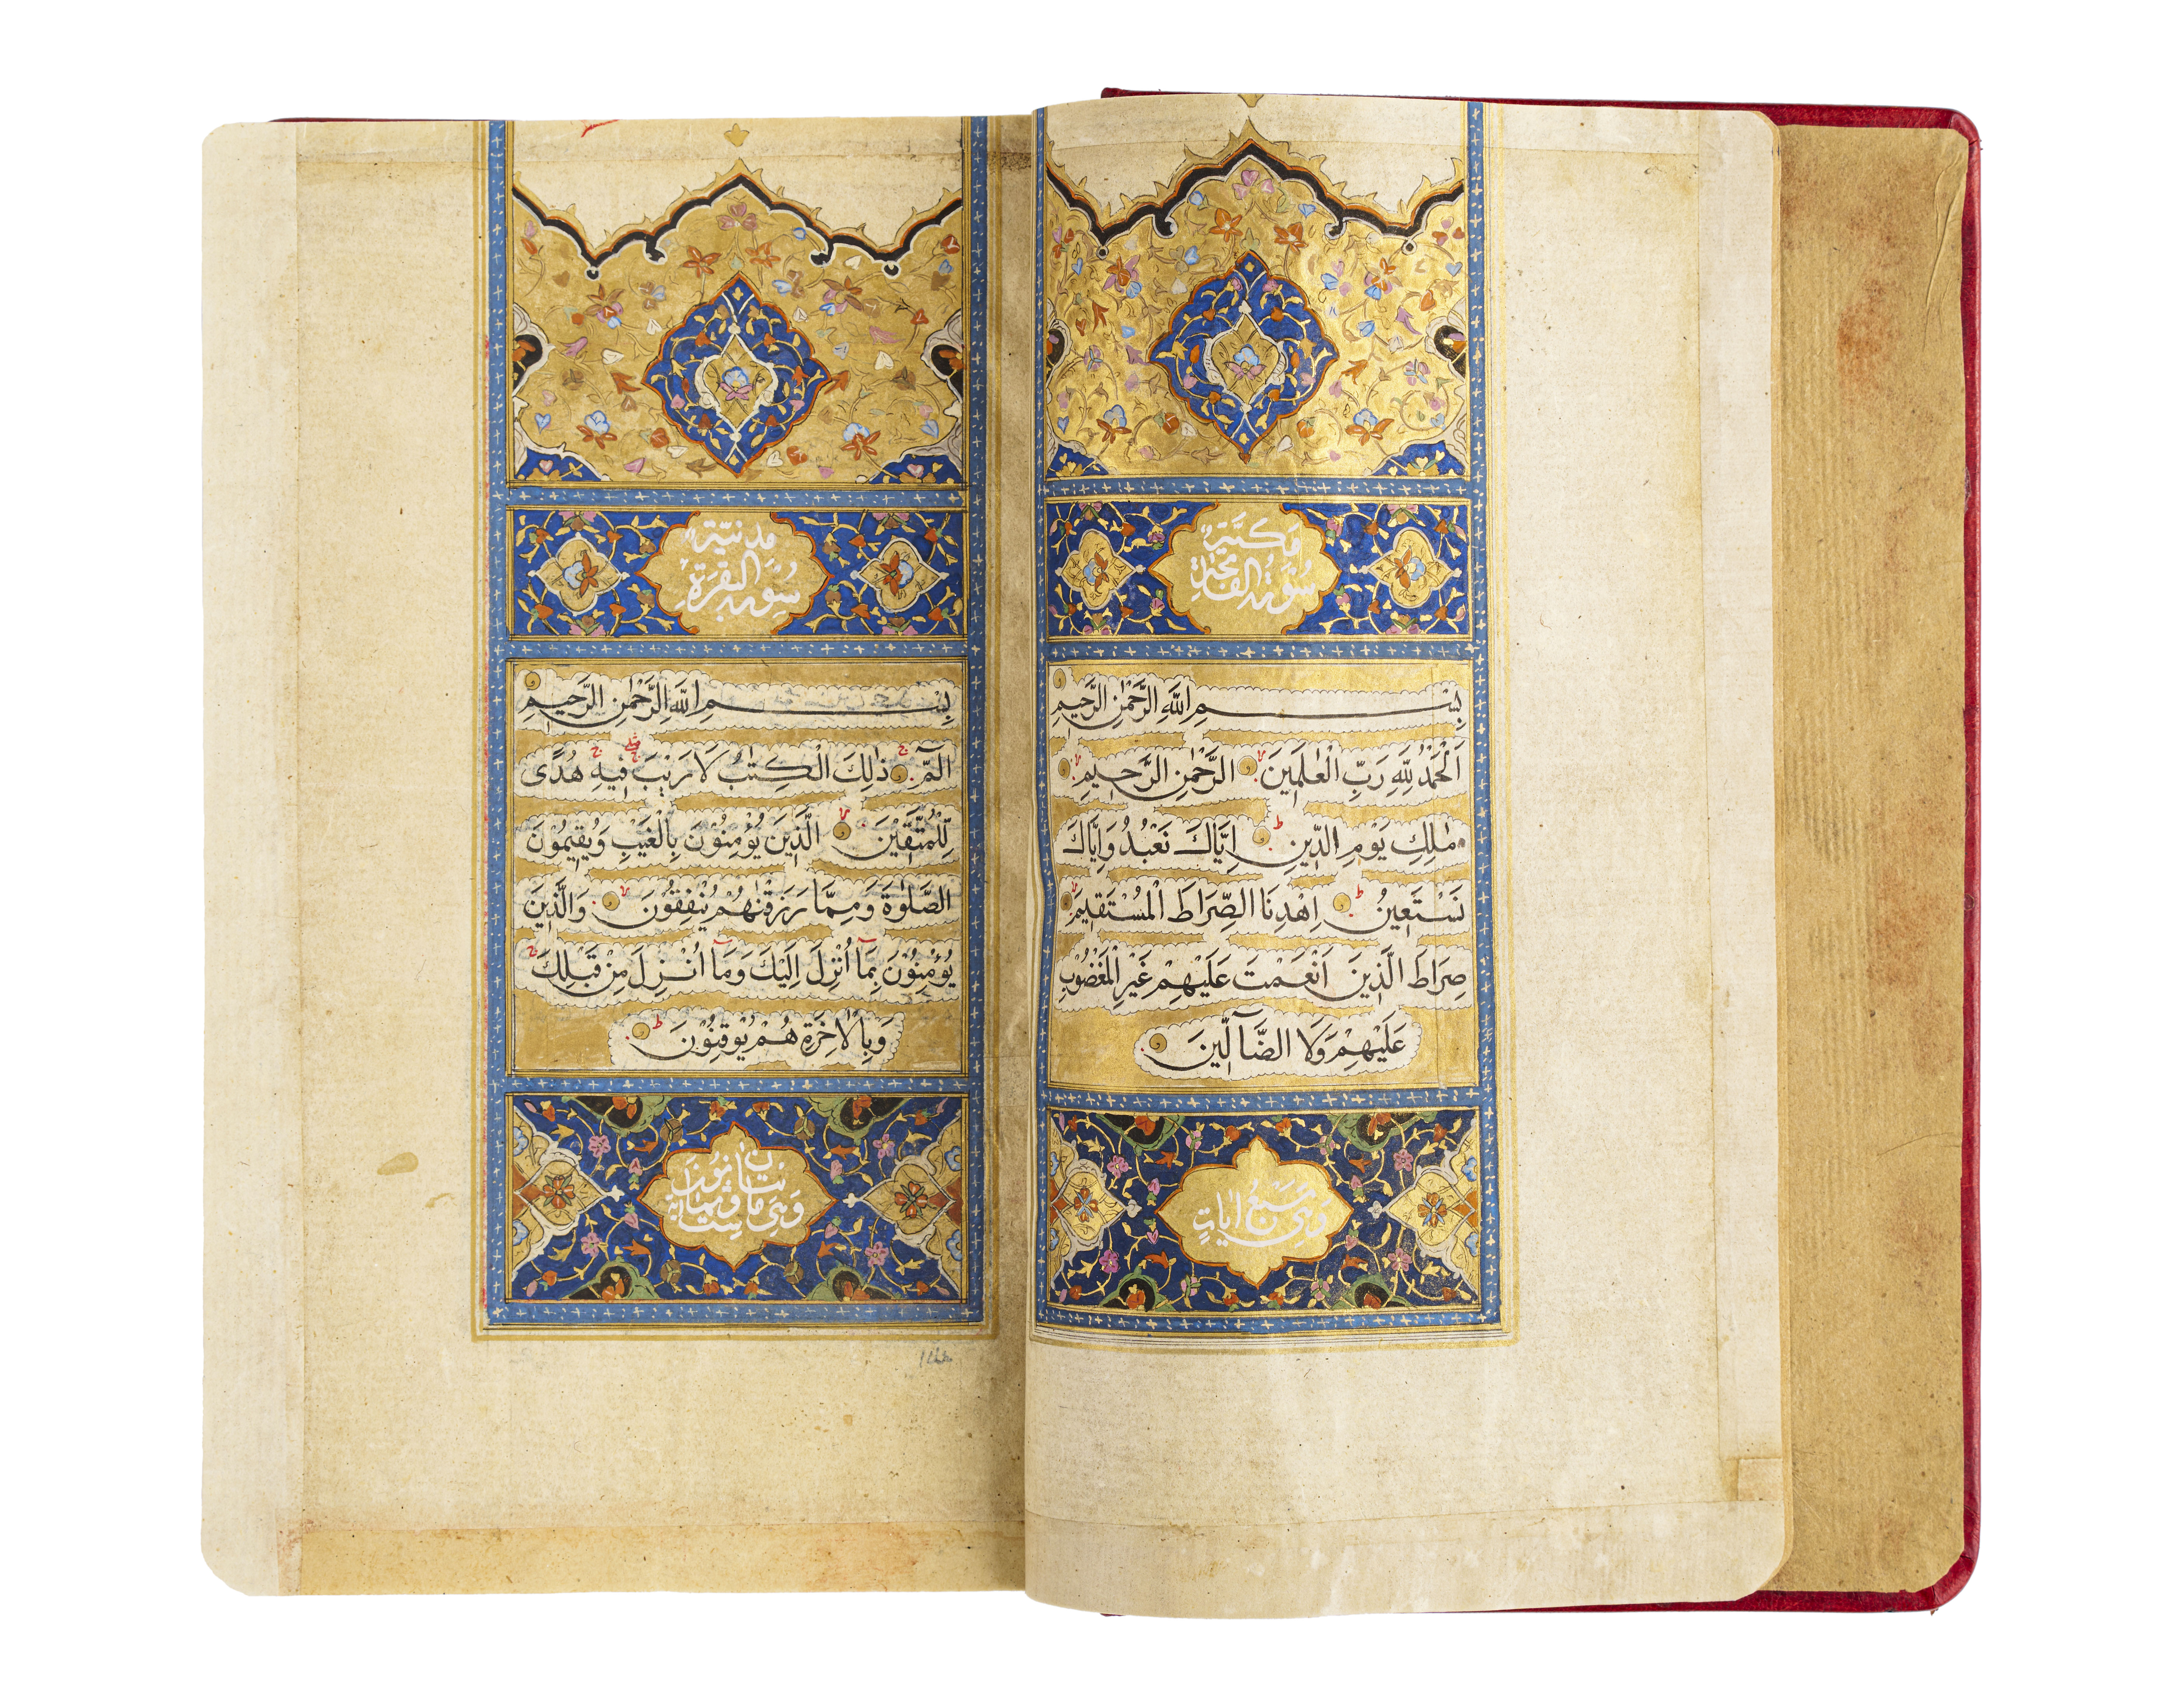 مَكِّيَّةٌ
سُوْرَةُ الفَاتِحَةِ
بِسْمِ اللّٰهِ الرَّحْمٰنِ الرَّحِيْمِ
اَلْحَمْدُ لِلّٰهِ رَبِّ الْعٰلَمِيْنَ الرَّحْمٰنِ الرَّحِيْمِ
مٰلِكِ يَوْمِ الدِّيْنِ اِيَّاكَ نَعْبُدُ وَاِيَّاكَ
نَسْتَعِيْنُ اِهْدِنَا الصِّرَاطَ الْمُسْتَقِيْمَ
صِرَاطَ الَّذِيْنَ اَنْعَمْتَ عَلَيْهِمْ غَيْرِ الْمَغْضُوْبِ
عَلَيْهِمْ وَلَا الضَّآلِّيْنَ
وَهِيَ سَبْعُ اٰيَاتٍ
مَدَنِيَّةٌ
سُوْرَةُ الْبَقَرَةِ
بِسْمِ اللّٰهِ الرَّحْمٰنِ الرَّحِيْمِ
الٓمّٓ ذٰلِكَ الْكِتٰبُ لَا رَيْبَ فِيْهِ هُدًى
لِّلْمُتَّقِيْنَ الَّذِيْنَ يُؤْمِنُوْنَ بِالْغَيْبِ وَيُقِيْمُوْنَ
الصَّلٰوةَ وَمِمَّا رَزَقْنٰهُمْ يُنْفِقُوْنَ وَالَّذِيْنَ
يُؤْمِنُوْنَ بِمَآ اُنْزِلَ اِلَيْكَ وَمَآ اُنْزِلَ مِنْ قَبْلِكَ
وَبِالْاٰخِرَةِ هُمْ يُوْقِنُوْنَ
وَهِيَ مائتان وثمانون
ست اية